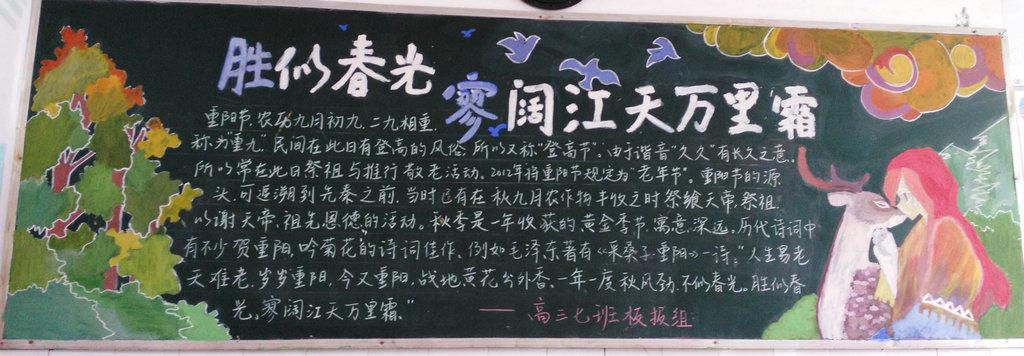 胜似春光
寥阔江天万里霜
重阳节,农历九月初九,二九相重,
称为"重九"。民间在此日有登高的风俗,所以又称"登高节"。由于谐音"久久"有长久之意,
所以常在此日祭祖与推行敬老活动。2012年将重阳节规定为"老年节"。重阳节的源
头,可追溯到先秦之前,当时已有在秋九月农作物丰收之时祭飨天帝,祭祖,
以谢天帝、祖先恩德的活动。秋季是一年收获的黄金季节,寓意深远。历代诗词中
有不少贺重阳,吟菊花的诗词佳作,例如毛泽东著有《采桑子·重阳》一诗:"人生易老
天难老,岁岁重阳,今又重阳,战地黄花分外香。一年一度秋风劲,不似春光。胜似春
光,寥阔江天万里霜。"
——高三七班板报组